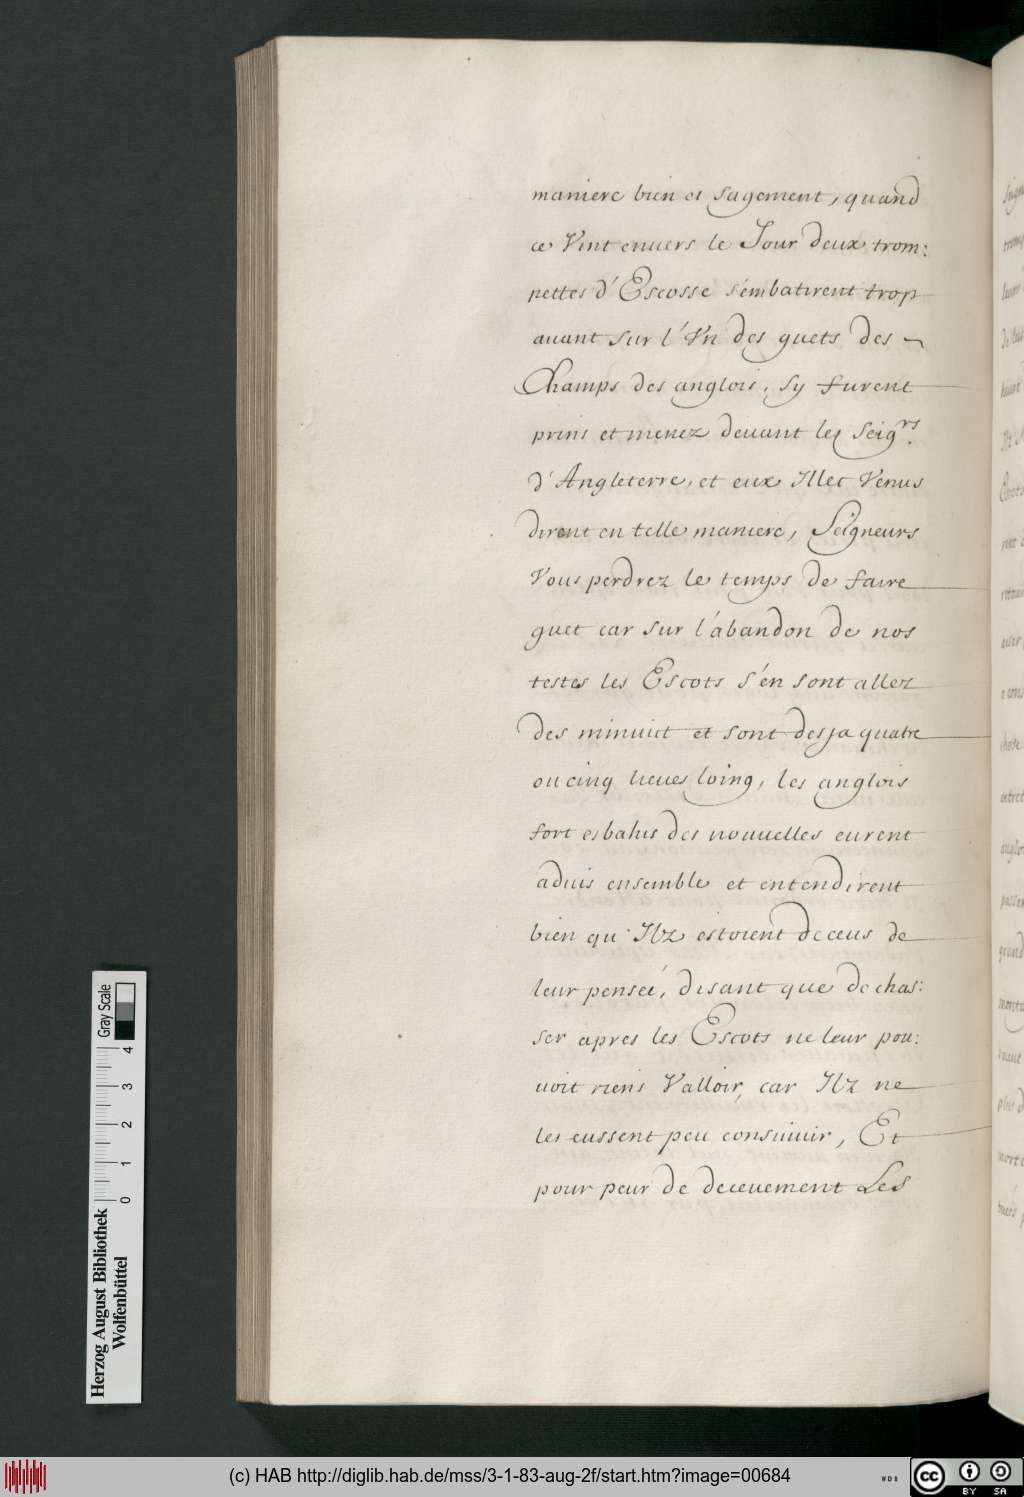 maniere bien et sagement, quand
ce Vint enuers le Jour deux trom:
pettes d'Escosse s'embatirent trop
auant sur l'Vn des guets des
Champs des anglois, sy furent
prins et menez deuant les Seig.rs
d'Angleterre, et eux Illec Venus
dirent en telle maniere, Seigneurs
Vous perdrez le temps de faire
guet car sur l'abandon de nos
testes les Escots s'en sont allez
des minuict et sont desja quatre
ou cinq lieues loing, les anglois
fort esbahis des nouuelles eurent
aduis ensemble et entendirent
bien qu'Ilz estoient deceus de
leur penseé, disant que de chas:
ser apres les Escots ne leur pou:
uoit riens Valloir, car Ilz ne
les eussent peu consuiuir, Et
pour peur de deceuement Les
Herzog August Bibliothek
Wolfenbüttel
0 1 2 3 4
Gray Scale
(c) HAB http://diglib.hab.de/mss/3-1-83-aug-2f/start.htm?image=00684
cc BY SA